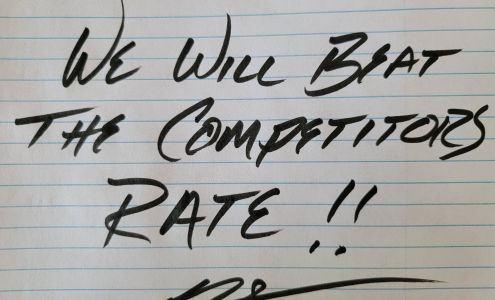 WE WILL BEAT
THE COMPETITORS
RATE !!